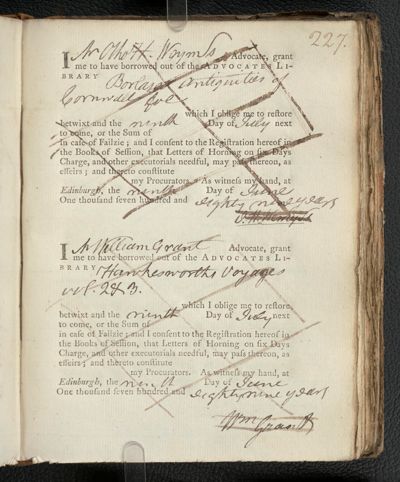 227.
I Mr Otho H. Wemyss Advocate, grant
me to have borrowed out of the ADVOCATES LI-
BRARY Borlase's Antiquities of
Cornwall fol.
which I oblige me to reſtore
betwixt and the ninth Day of July next
to come, or the Sum of
in caſe of Failzie; and I conſent to the Regiſtration hereof in
the Books of Seſſion, that Letters of Horning on ſix Days
Charge, and other executorials needful, may paſs thereon, as
effeirs; and thereto conſtitute
my Procurators. As witneſs my hand, at
Edinburgh, the ninth Day of June
One thouſand ſeven hundred and eighty nine years
I Mr William Grant Advocate, grant
me to have borrowed out of the ADVOCATES LI-
BRARY Hawkesworths Voyages
vol. 2 & 3.
which I oblige me to reſtore
betwixt and the ninth Day of July next
to come, or the Sum of
in caſe of Failzie; and I conſent to the Regiſtration hereof in
the Books of Seſſion, that Letters of Horning on ſix Days
Charge, and other executorials needful, may paſs thereon, as
effeirs; and thereto conſtitute
my Procurators. As witneſs my hand, at
Edinburgh, the ninth Day of June
One thouſand ſeven hundred and eighty nine years
Wm Grant